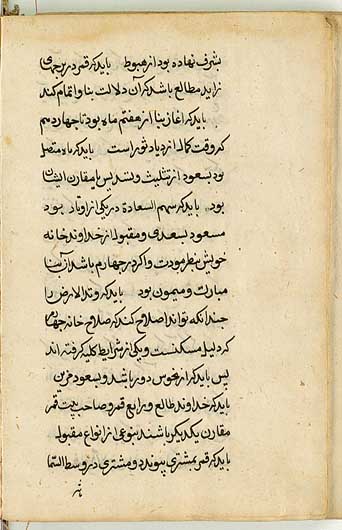 بشرف نهاده بود از هبوط باید که قمر در برجهای
زاید مطالع باشد که آن دلالت بنا و اتمام کند
باید که اغاز بنا از هفتم ماه بود تا چهاردهم
که وقت کمال ازدیاد نور است باید که ماه متصل
بود بسعود از تثلیث و تسدیس یا مقارن ایشان
بود باید که سهم السعادة در یکی از اوتاد بود
مسعود بسعدی و مقبول از خداوند خانه
خویش بنظر مودت و اکر در چهارم باشد آن بنا
مبارک و میمون بود باید که وتد الارض را
چندانکه تواند اصلاح کند که صلاح خانه چهارم
که دلیل مسکنست و یکی از شرایط کلیه کرفته اند
پس باید که از نحوس دور باشد و بسعود مزین
باید که خداوند طالع و رابع قمر و صاحب بیت قمر
مقارن یکدیکر باشند بنوعی از انواع مقبوله
باید که قمر بمشتری پیوندد و مشتری در وسط السما